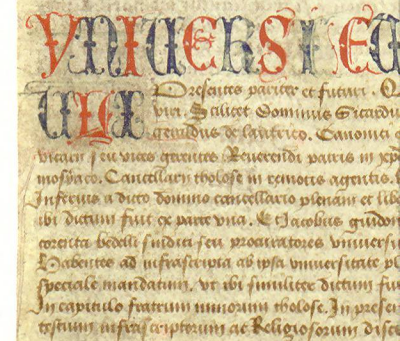 VNIUERSI EU
ULI Presentes pariter et futuri. Q
viri. Scilicet Dominus Sicardu
geraldus de lautrico. Canonici e
vicarii seu vices gerentes Reverendi patris in xpo
Cancellarii tholose in remotis agentis.
Inferius a dicto domino cancellario plenam et libe
ibi dictum fuit ex parte una. Et Jacobus guidon
bedelli sindici seu procuratores universi
Habentes ad infrascripta ab ipsa universitate pl
speciale mandatum, ut ibi similiter dictum fui
In capitulo fratrum minorum tholose. In presen
testium infrascriptorum ac Religiosorum disc